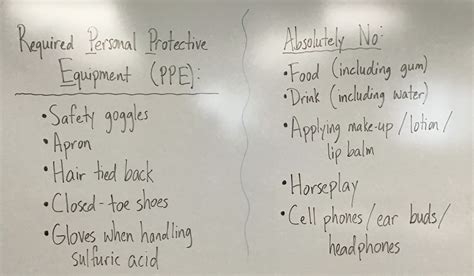 Required Personal Protective
Equipment (PPE):
• Safety goggles
• Apron
• Hair tied back
• Closed-toe shoes
• Gloves when handling
sulfuric acid
Absolutely No:
• Food (including gum)
• Drink (including water)
• Applying make-up/lotion/
lip balm
• Horseplay
• Cell phones/ear buds/
headphones